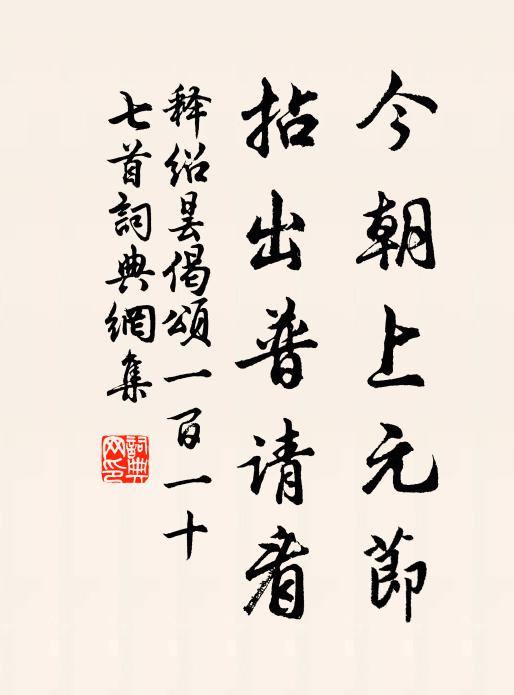 今朝上元節
拈出普请看
释绍昙偈颂一百一十
七首詞典網集
詞典
网印